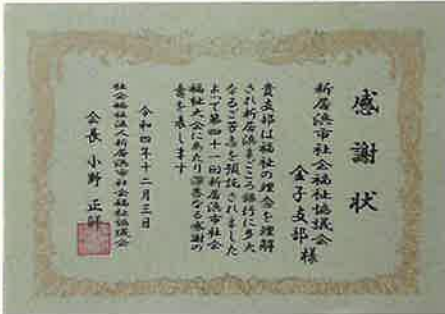 感謝状
新居浜市社会福祉協議会
金子支部様
貴支部は福祉の理念を理解
され新居浜まごころ銀行に多大
なるご芳志を預託されました
よって第四十一回新居浜市社会
福祉大会にあたり深甚なる感謝の
意を表します
令和四年十二月三日
社会福祉法人新居浜市社会福祉協議会
会長 小野 正